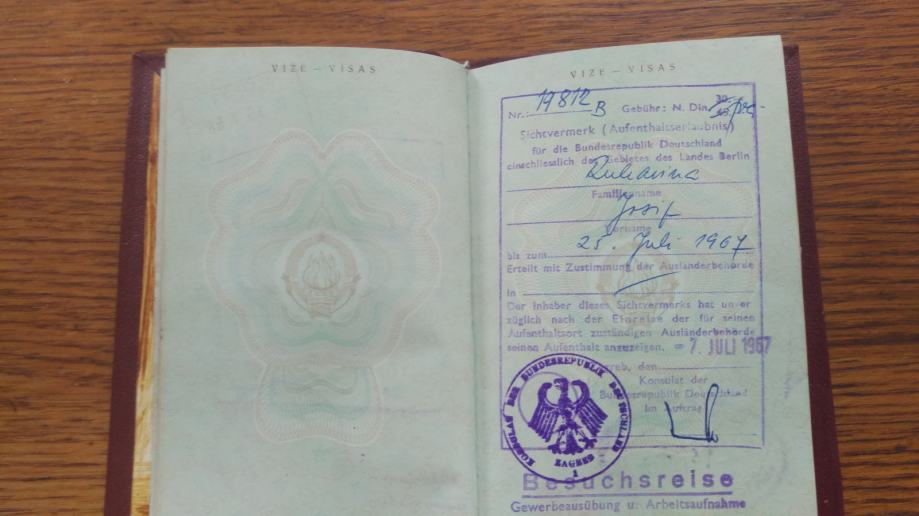 VIZE – VISAS
VIZE – VISAS
Nr.: 19812 B Gebühr: N. Din.
Sichtvermerk (Aufenthaltserlaubnis)
für die Bundesrepublik Deutschland
einschliesslich des Gebietes des Landes Berlin
Familienname
Josip
Vorname
bis zum 25. Juli 1967
Erteilt mit Zustimmung der Ausländerbehörde
in
Der Inhaber dieses Sichtvermerks hat unver
züglich nach der Einreise der für seinen
Aufenthaltsort zuständigen Ausländerbehörde
seinen Aufenthalt anzuzeigen. 7. JULI 1967
den
Konsulat der
Bundesrepublik Deutschland
Im Auftrag
KONSULAT DER BUNDESREPUBLIK DEUTSCHLAND
ZAGREB
1
Besuchsreise
Gewerbeausübung u. Arbeitsaufnahme